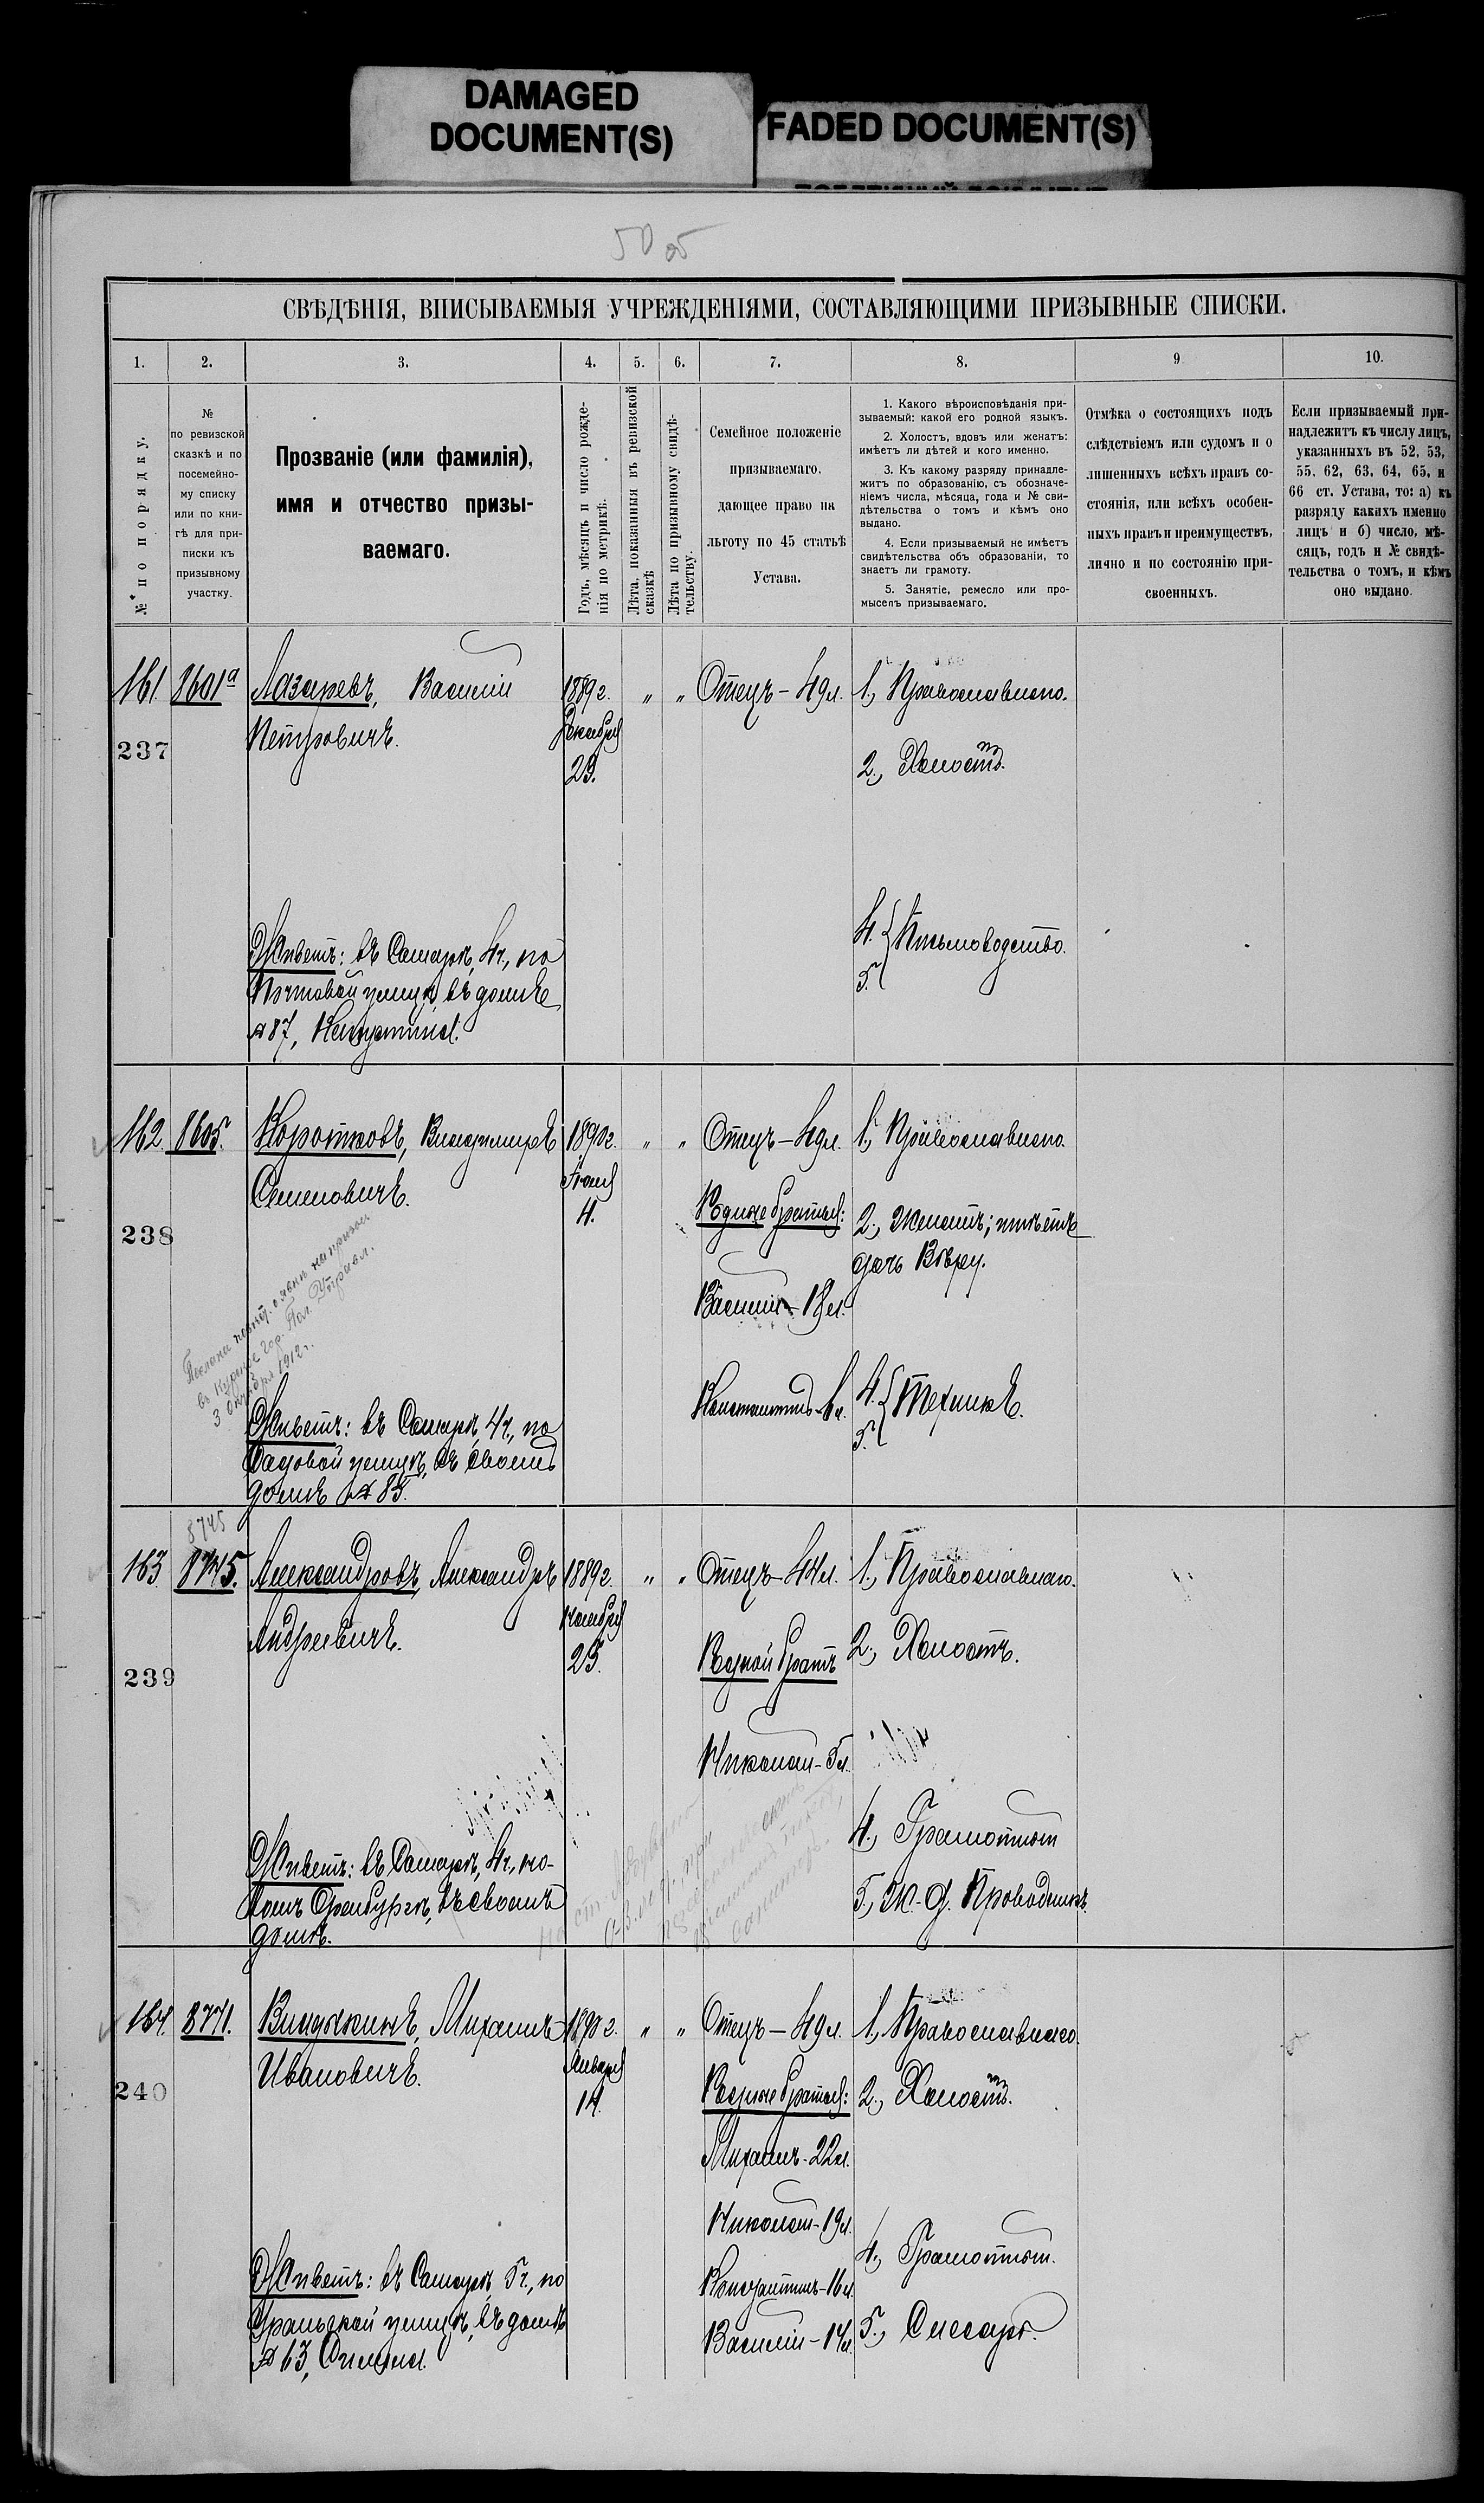 DAMAGED
DOCUMENT(S)
FADED DOCUMENT(S)
50 об
СВѢДѢНІЯ, ВПИСЫВАЕМЫЯ УЧРЕЖДЕНІЯМИ, СОСТАВЛЯЮЩИМИ ПРИЗЫВНЫЕ СПИСКИ.
1. 2. 3. 4. 5. 6. 7. 8. 9 10.
№ по порядку.
№
по ревизской
сказкѣ и по
посемейно-
му списку
или по кни-
гѣ для при-
писки къ
призывному
участку.
Прозваніе (или фамилія),
имя и отчество призы-
ваемаго.
Годъ, мѣсяцъ и число рожде-
нія по метрикѣ.
Лѣта, показанныя въ ревизской
сказкѣ
Лѣта по призывному свидѣ-
тельству.
Семейное положеніе
призываемаго,
дающее право на
льготу по 45 статьѣ
Устава.
1. Какого вѣроисповѣданія при-
зываемый: какой его родной языкъ.
2. Холостъ, вдовъ или женатъ:
имѣетъ ли дѣтей и кого именно.
3. Къ какому разряду принадле-
житъ по образованію, съ обозначе-
ніемъ числа, мѣсяца, года и № сви-
дѣтельства о томъ и кѣмъ оно
выдано.
4. Если призываемый не имѣетъ
свидѣтельства объ образованіи, то
знаетъ ли грамоту.
5. Занятіе, ремесло или про-
мыселъ призываемаго.
Отмѣка о состоящихъ подъ
слѣдствіемъ или судомъ и о
лишенныхъ всѣхъ правъ со-
стоянія, или всѣхъ особен-
ныхъ правъ и преимуществъ,
лично и по состоянію при-
своенныхъ.
Если призываемый при-
надлежитъ къ числу лицъ,
указанныхъ въ 52, 53,
55, 62, 63, 64, 65, и
66 ст. Устава, то: а) къ
разряду какихъ именно
лицъ и б) число, мѣ-
сяцъ, годъ и № свидѣ-
тельства о томъ, и кѣмъ
оно выдано.
161. 8601а Лазаревъ, Василій
Петровичъ.
237
1889 г.
Декабря
29.
" "
Отецъ - 49 л.
1., Православнаго.
2., Холостъ.
4. 5. Письмоводство.
Живетъ: въ Самарѣ, 4 ч., по
Почтовой улицѣ, въ домѣ
№ 87,
162. 8605. Коротковъ, Владиміръ
Семеновичъ.
238
1890 г.
Іюля
4.
" "
Отецъ - 49 л.
Родные братья:
Василій - 19 л.
Константинъ
1., Православнаго.
2., Женатъ; имѣетъ
дочь Вѣру.
4. 5. Техникъ.
явкѣ на призыв
в гор. Пол. Управл.
3 октября 1912 г.
Живетъ: въ Самарѣ, 4 ч., по
Садовой улицѣ, въ своемъ
домѣ № 85.
8745
163 8745. Александровъ, Александръ
Андреевичъ.
239
1889 г.
Ноября
25.
" "
Отецъ - 44 л.
Родной братъ
Николай - 5 л.
1., Православнаго.
2., Холостъ.
4., Грамотный
5., Ж.-д. Проводникъ.
Живетъ: въ Самарѣ, 4 ч., но-
вомъ Оренбургѣ, въ своемъ
домѣ.
164. 8771. Михаилъ
Ивановичъ.
240
1890 г.
Января
14.
" "
Отецъ - 49 л.
Родные братья:
Михаилъ - 22 л.
Николай - 19 л.
Константинъ - 16 л.
Василій - 14 л.
1., Православнаго.
2., Холостъ.
4., Грамотный.
5., Слесарь.
Живетъ: въ Самарѣ, 5 ч., по
Уральской улицѣ, въ домѣ
№ 63,